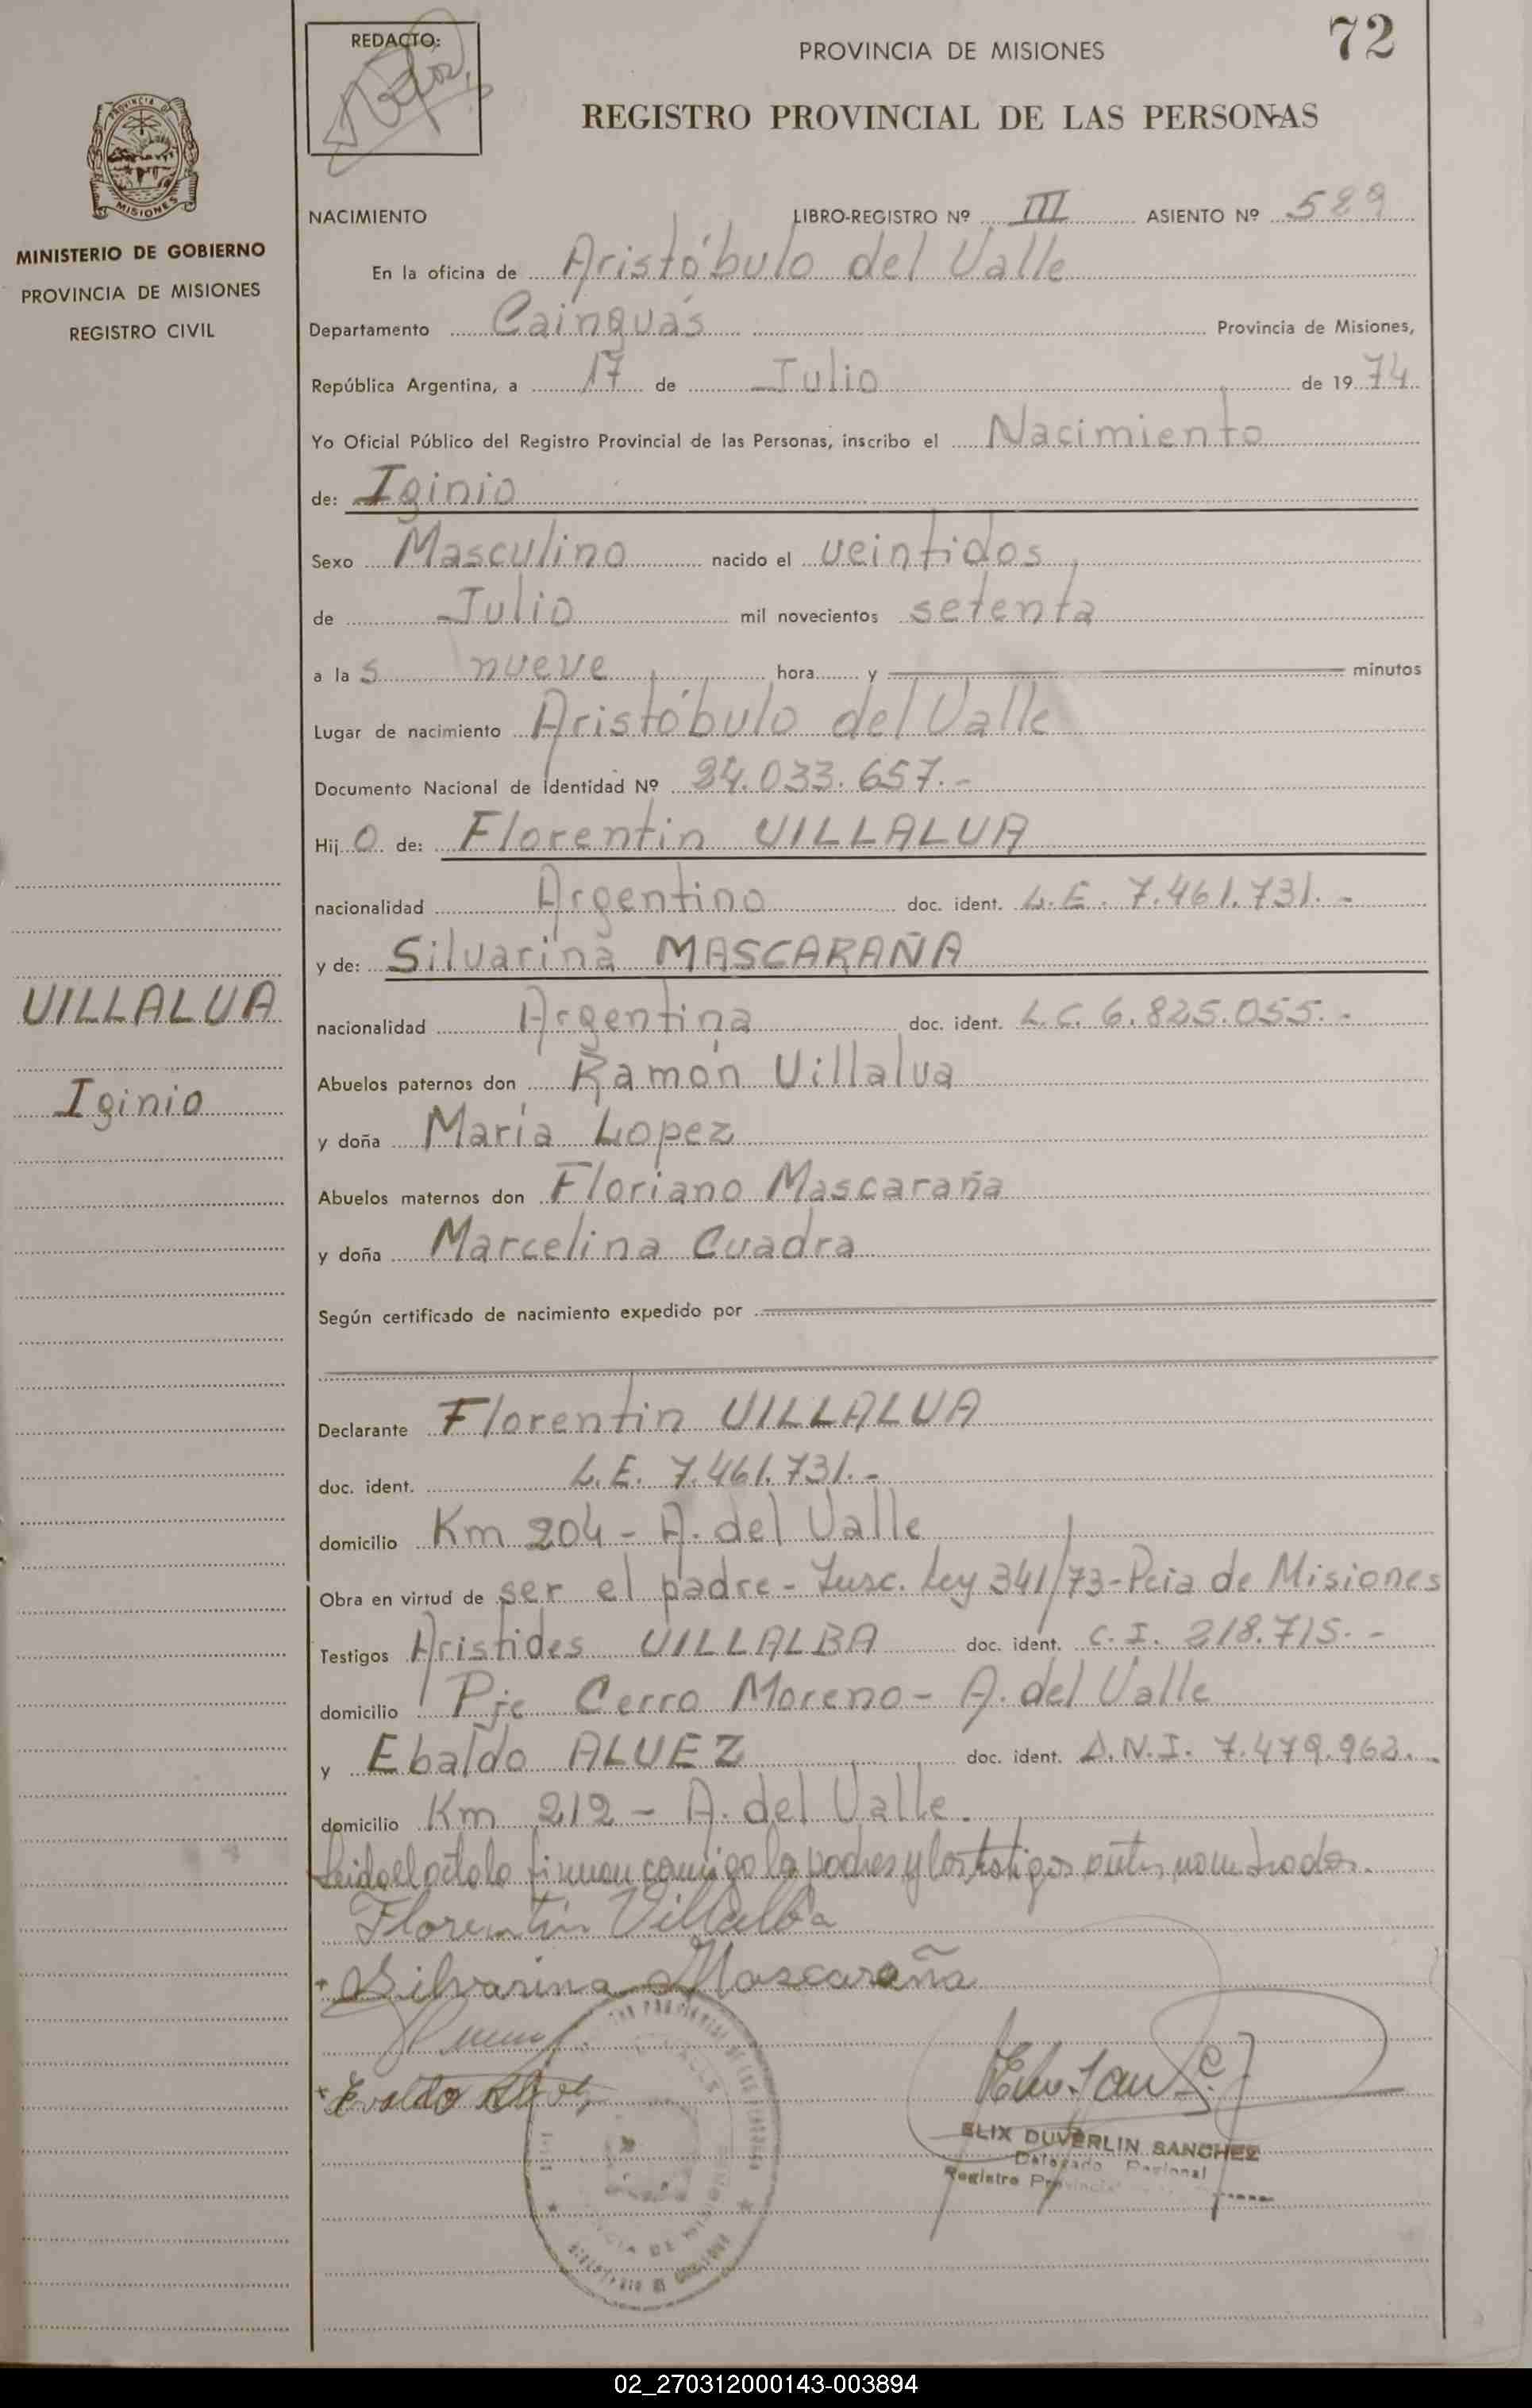 72
REDACTO:
PROVINCIA DE MISIONES
REGISTRO PROVINCIAL DE LAS PERSONAS
PROVINCIA DE
MISIONES
MINISTERIO DE GOBIERNO
PROVINCIA DE MISIONES
REGISTRO CIVIL
NACIMIENTO LIBRO-REGISTRO Nº III ASIENTO Nº 589
En la oficina de Aristóbulo del Valle
Departamento Cainguás Provincia de Misiones,
República Argentina, a 17 de Julio de 1974
Yo Oficial Público del Registro Provincial de las Personas, inscribo el Nacimiento
de: Iginio
Sexo Masculino nacido el veintidos
de Julio mil novecientos setenta
a las nueve hora y minutos
Lugar de nacimiento Aristóbulo del Valle
Documento Nacional de Identidad Nº 24.033.657.-
Hijo de: Florentin VILLALVA
nacionalidad Argentino doc. ident. L.E. 7.461.731.-
y de: Silvarina MASCARAÑA
VILLALVA
nacionalidad Argentina doc. ident. L.C. 6.825.055.-
Abuelos paternos don Ramón Villalva
Iginio
y doña María Lopez
Abuelos maternos don Floriano Mascaraña
y doña Marcelina Cuadra
Según certificado de nacimiento expedido por
Declarante Florentin VILLALVA
doc. ident. L.E. 7.461.731.-
domicilio Km 204 - A. del Valle
Obra en virtud de ser el padre - Insc. Ley 341/73-Pcia de Misiones
Testigos Aristides VILLALBA doc. ident. C.I. 218.715.-
domicilio Pje Cerro Moreno - A. del Valle
y Ebaldo ALVEZ doc. ident. D.N.I. 7.479.962.-
domicilio Km 212 - A. del Valle.
Leida el acta la firman conmigo los padres y los testigos antes nombrados.
Florentin Villalba
Silvarina Mascaraña
Evaldo
ELIX DUVERLIN SANCHEZ
Delegado Regional
Registro Provincial
02_270312000143-003894